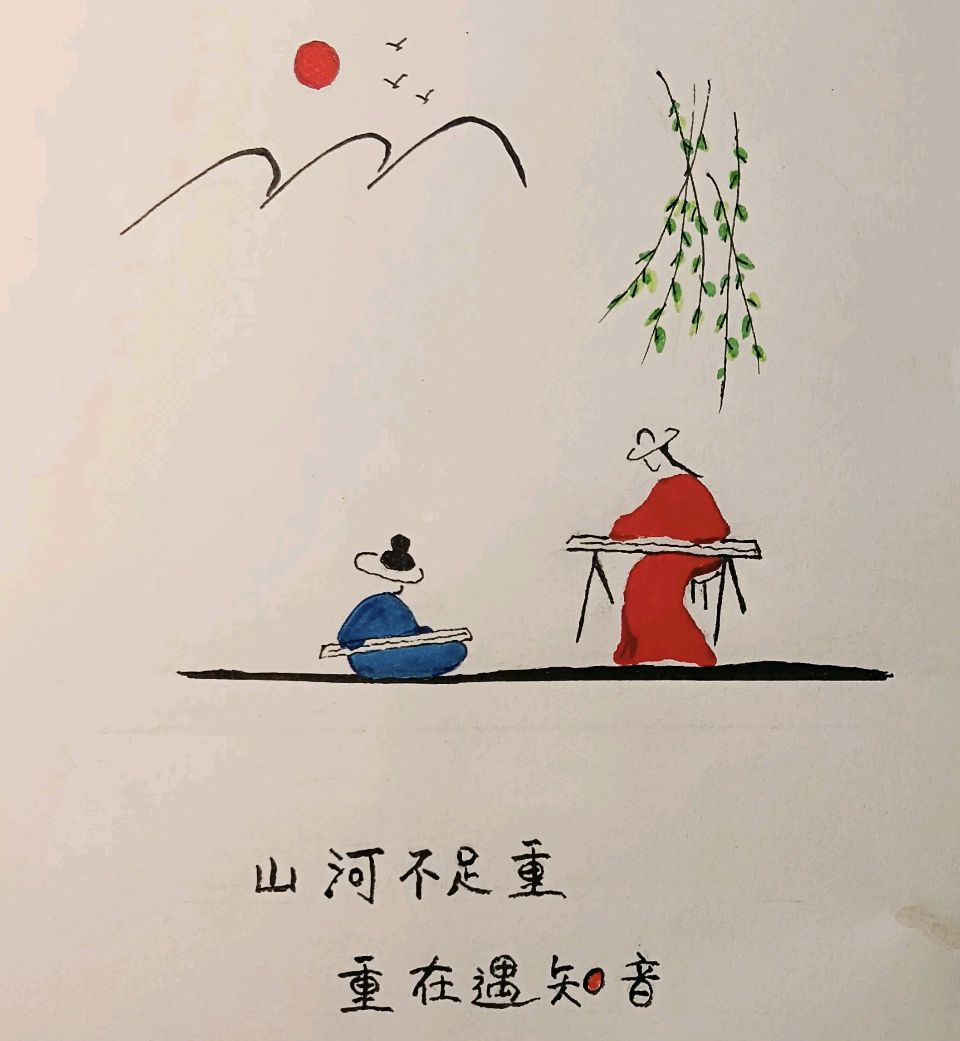 山河不足重
重在遇知音